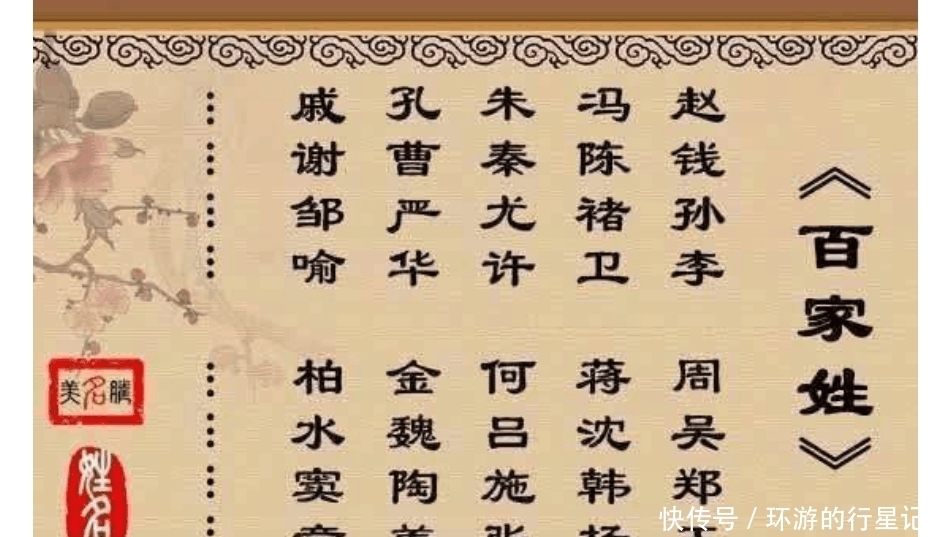 《百家姓》
赵钱孙李
周吴郑
冯陈褚卫
蒋沈韩
朱秦尤许
何吕施
孔曹严华
金魏陶
戚谢邹喻
柏水窦
………………
美名腾
姓名
快传号／环游的行星记